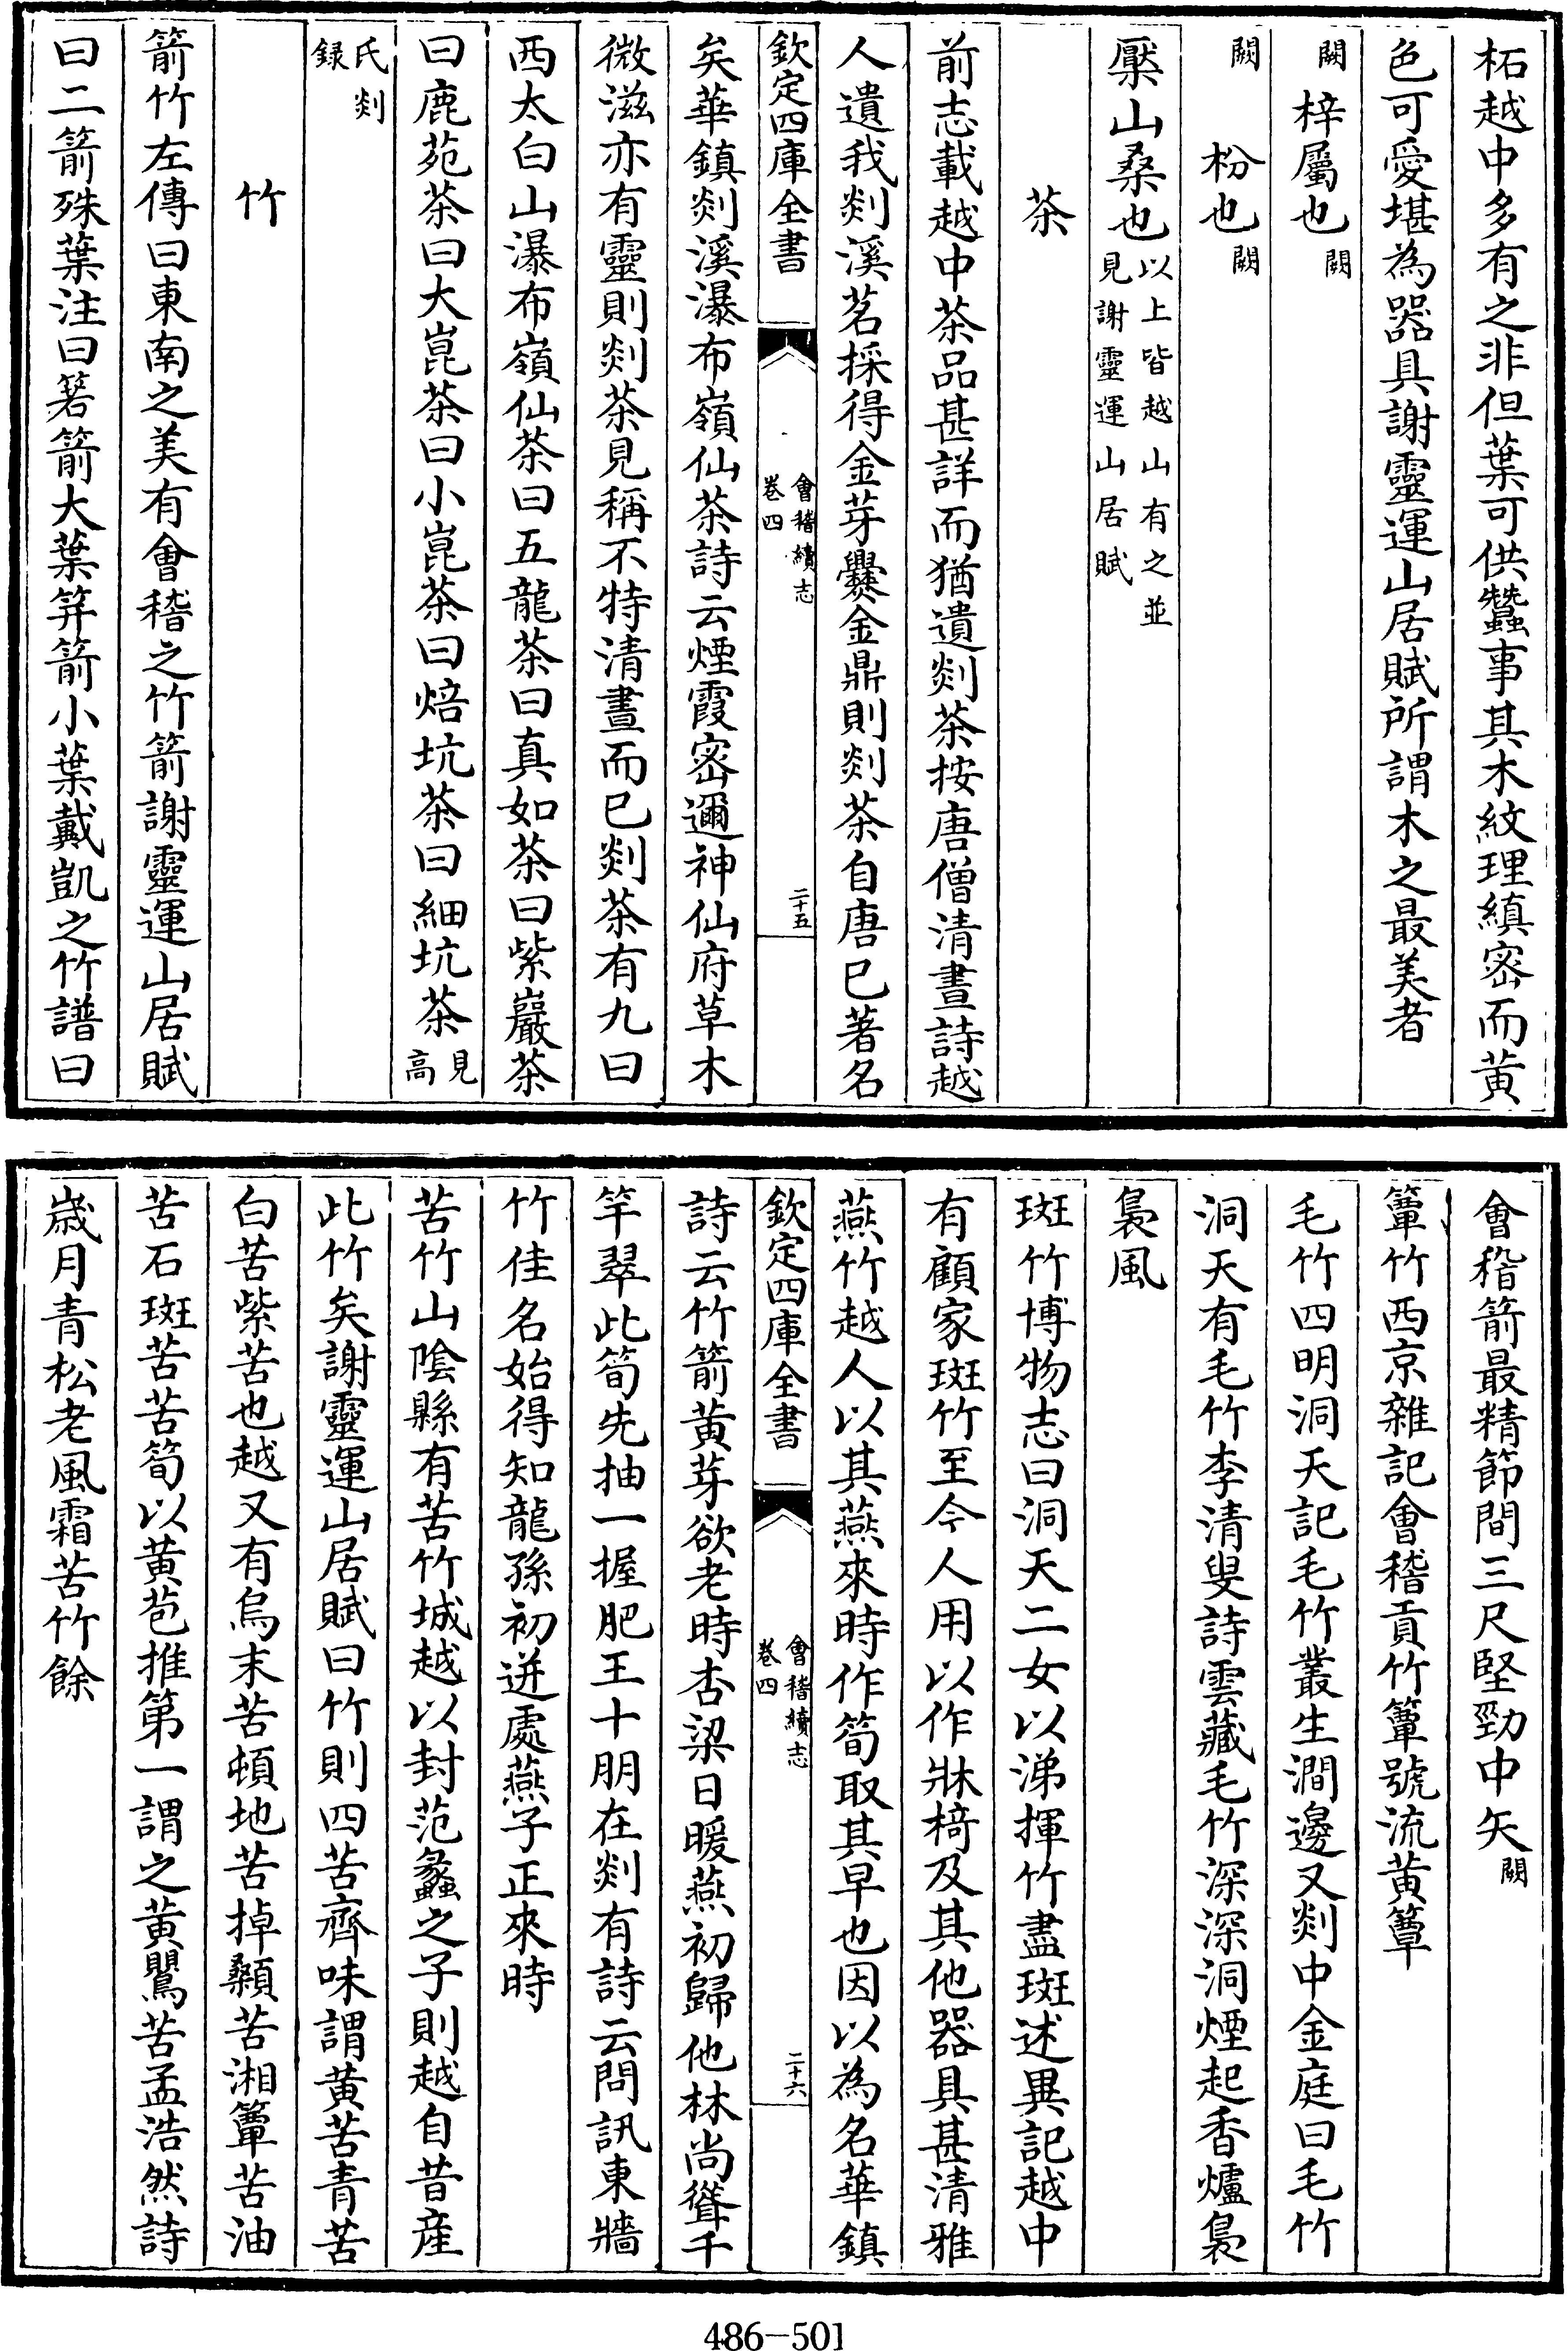 柘越中多有之非但葉可供蠶事其木紋理縝密而黄
色可愛堪為器具謝靈運山居賦所謂木之最美者
闕梓屬也闕
闕枌也闕
檿山桑也以上皆越山有之並見謝靈運山居賦
茶
前志載越中茶品甚詳而猶遺剡茶按唐僧清晝詩越
人遺我剡溪茗採得金芽爨金鼎則剡茶自唐已著名
欽定四庫全書
會稽續志
卷四
二十五
矣華鎮剡溪瀑布嶺仙茶詩云煙霞密邇神仙府草木
微滋亦有靈則剡茶見稱不特清晝而已剡茶有九曰
西太白山瀑布嶺仙茶曰五龍茶曰真如茶曰紫巖茶
曰鹿苑茶曰大崑茶曰小崑茶曰焙坑茶曰細坑茶見高
氏剡録
竹
箭竹左傳曰東南之美有會稽之竹箭謝靈運山居賦
曰二箭殊葉注曰箬箭大葉笄箭小葉戴凱之竹譜曰
會稽箭最精節間三尺堅勁中矢闕
簟竹西京雜記會稽貢竹簟號流黄簟
毛竹四明洞天記毛竹叢生澗邊又剡中金庭曰毛竹
洞天有毛竹李清叟詩雲藏毛竹深深洞煙起香爐裊
裊風
斑竹博物志曰洞天二女以涕揮竹盡斑述異記越中
有顧家斑竹至今人用以作牀椅及其他器具甚清雅
燕竹越人以其燕來時作筍取其早也因以為名華鎮
欽定四庫全書
會稽續志
卷四
二十六
詩云竹箭黄芽欲老時杏梁日暖燕初歸他林尚聳千
竿翠此筍先抽一握肥王十朋在剡有詩云問訊東牆
竹佳名始得知龍孫初迸處燕子正來時
苦竹山陰縣有苦竹城越以封范蠡之子則越自昔産
此竹矣謝靈運山居賦曰竹則四苦齊味謂黄苦青苦
白苦紫苦也越又有烏末苦頓地苦掉顙苦湘簟苦油
苦石斑苦苦筍以黄苞推第一謂之黄鸎苦孟浩然詩
歳月青松老風霜苦竹餘
486-501